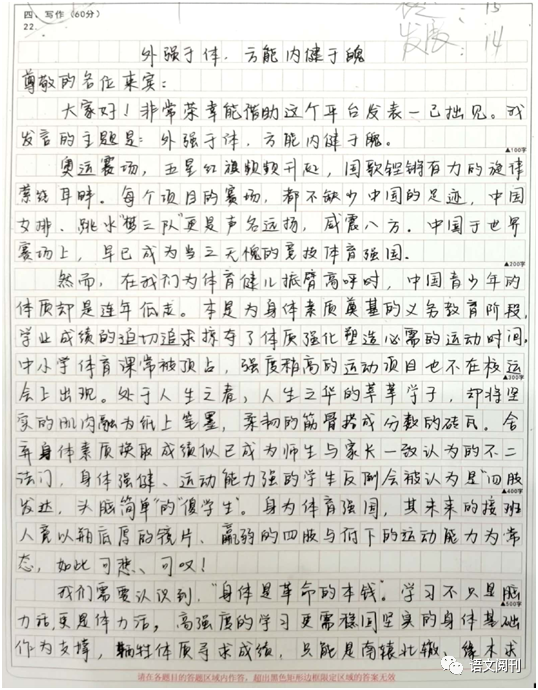 四、写作(60分)
22.
15
发版: 14
外强于体,方能内健于魄
尊敬的各位来宾:
大家好!非常荣幸能借助这个平台发表一己拙见。我
发言的主题是:外强于体,方能内健于魄。
▲100字
奥运赛场,五星红旗频频升起,国歌铿锵有力的旋律
萦绕耳畔。每个项目的赛场,都不缺少中国的足迹,中国
女排、跳水"梦之队"更是声名远扬,威震八方。中国于世界
赛场上,早已成为当之无愧的竞技体育强国。
▲200字
然而,在我们为体育健儿振臂高呼时,中国青少年的
体质却是连年低走。本是为身体素质奠基的义务教育阶段,
学业成绩的迫切追求掠夺了体质强化塑造必需的运动时间,
中小学体育课常被顶占,强度稍高的运动项目也不在校运
▲300字
会上出现。处于人生之春,人生之华的莘莘学子,却将坚
实的肌肉融为纸上笔墨,柔韧的筋骨搭成分数的砖瓦。舍
弃身体素质换取成绩似已成为师生与家长一致认为的不二
法门,身体强健、运动能力强的学生反倒会被认为是"四肢
▲400字
发达,头脑简单"的"傻学生"。身为体育强国,其未来的接班
人竟以瓶底厚的镜片、羸弱的四肢与低下的运动能力为常
态,如此可悲、可叹!
我们需要认识到,"身体是革命的本钱"。学习不只是脑
▲500字
力活,更是体力活,高强度的学习更需稳固坚实的身体基础
作为支撑,牺牲体质寻求成绩,只能是南辕北辙、缘木求
请在各题目的答题区域内作答,超出黑色矩形边框限定区域的答案无效
语文阅刊